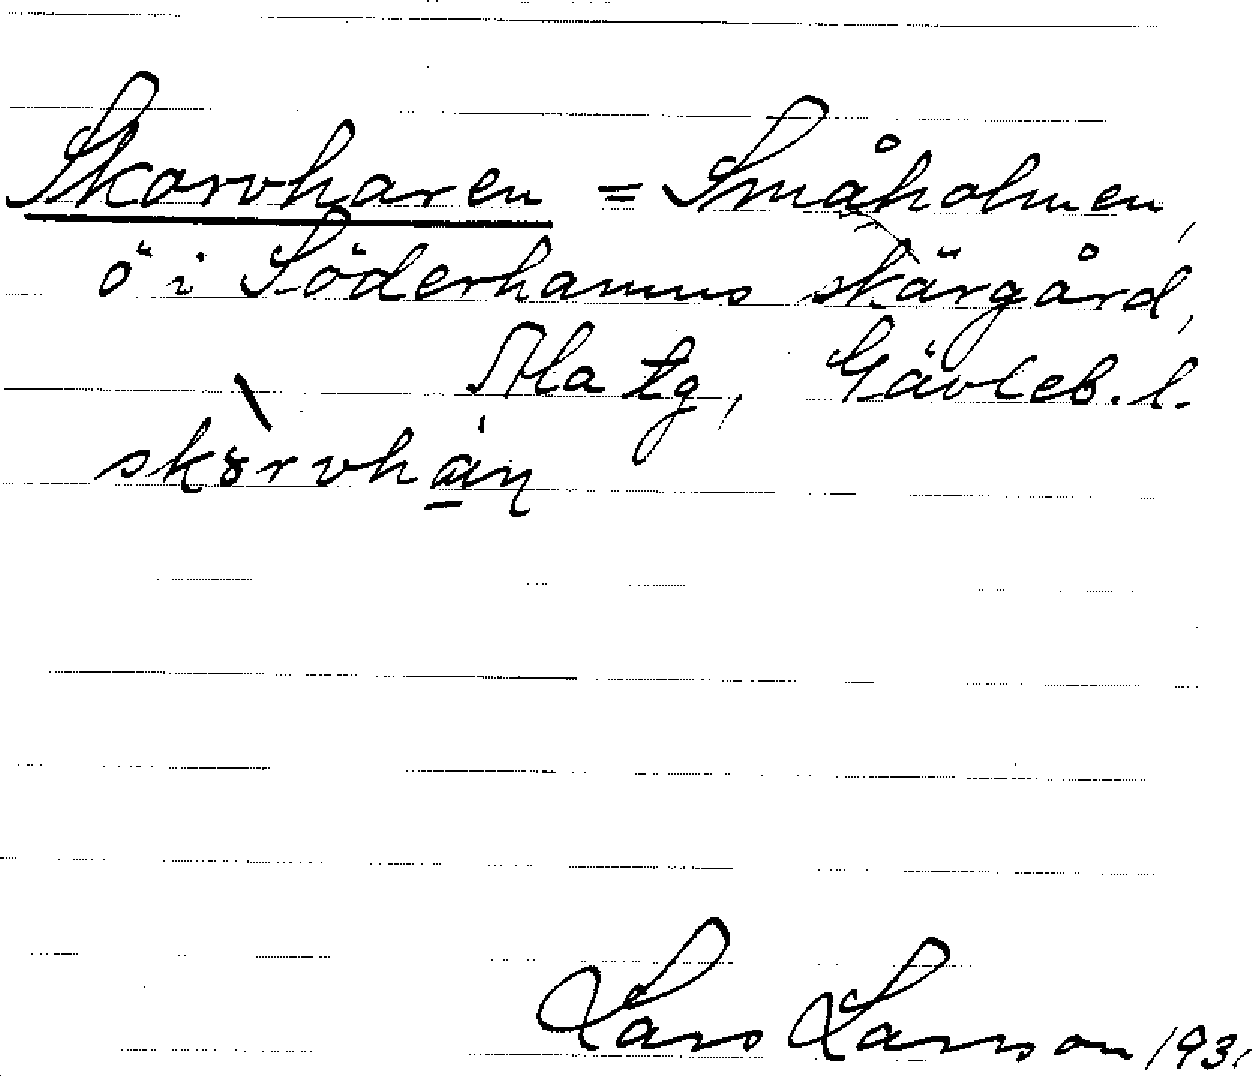 Skorvharen = Småholmen,
ö i Söderhamns skärgård,
Ala tg, Gävleb. l.
Lars Larsson 193